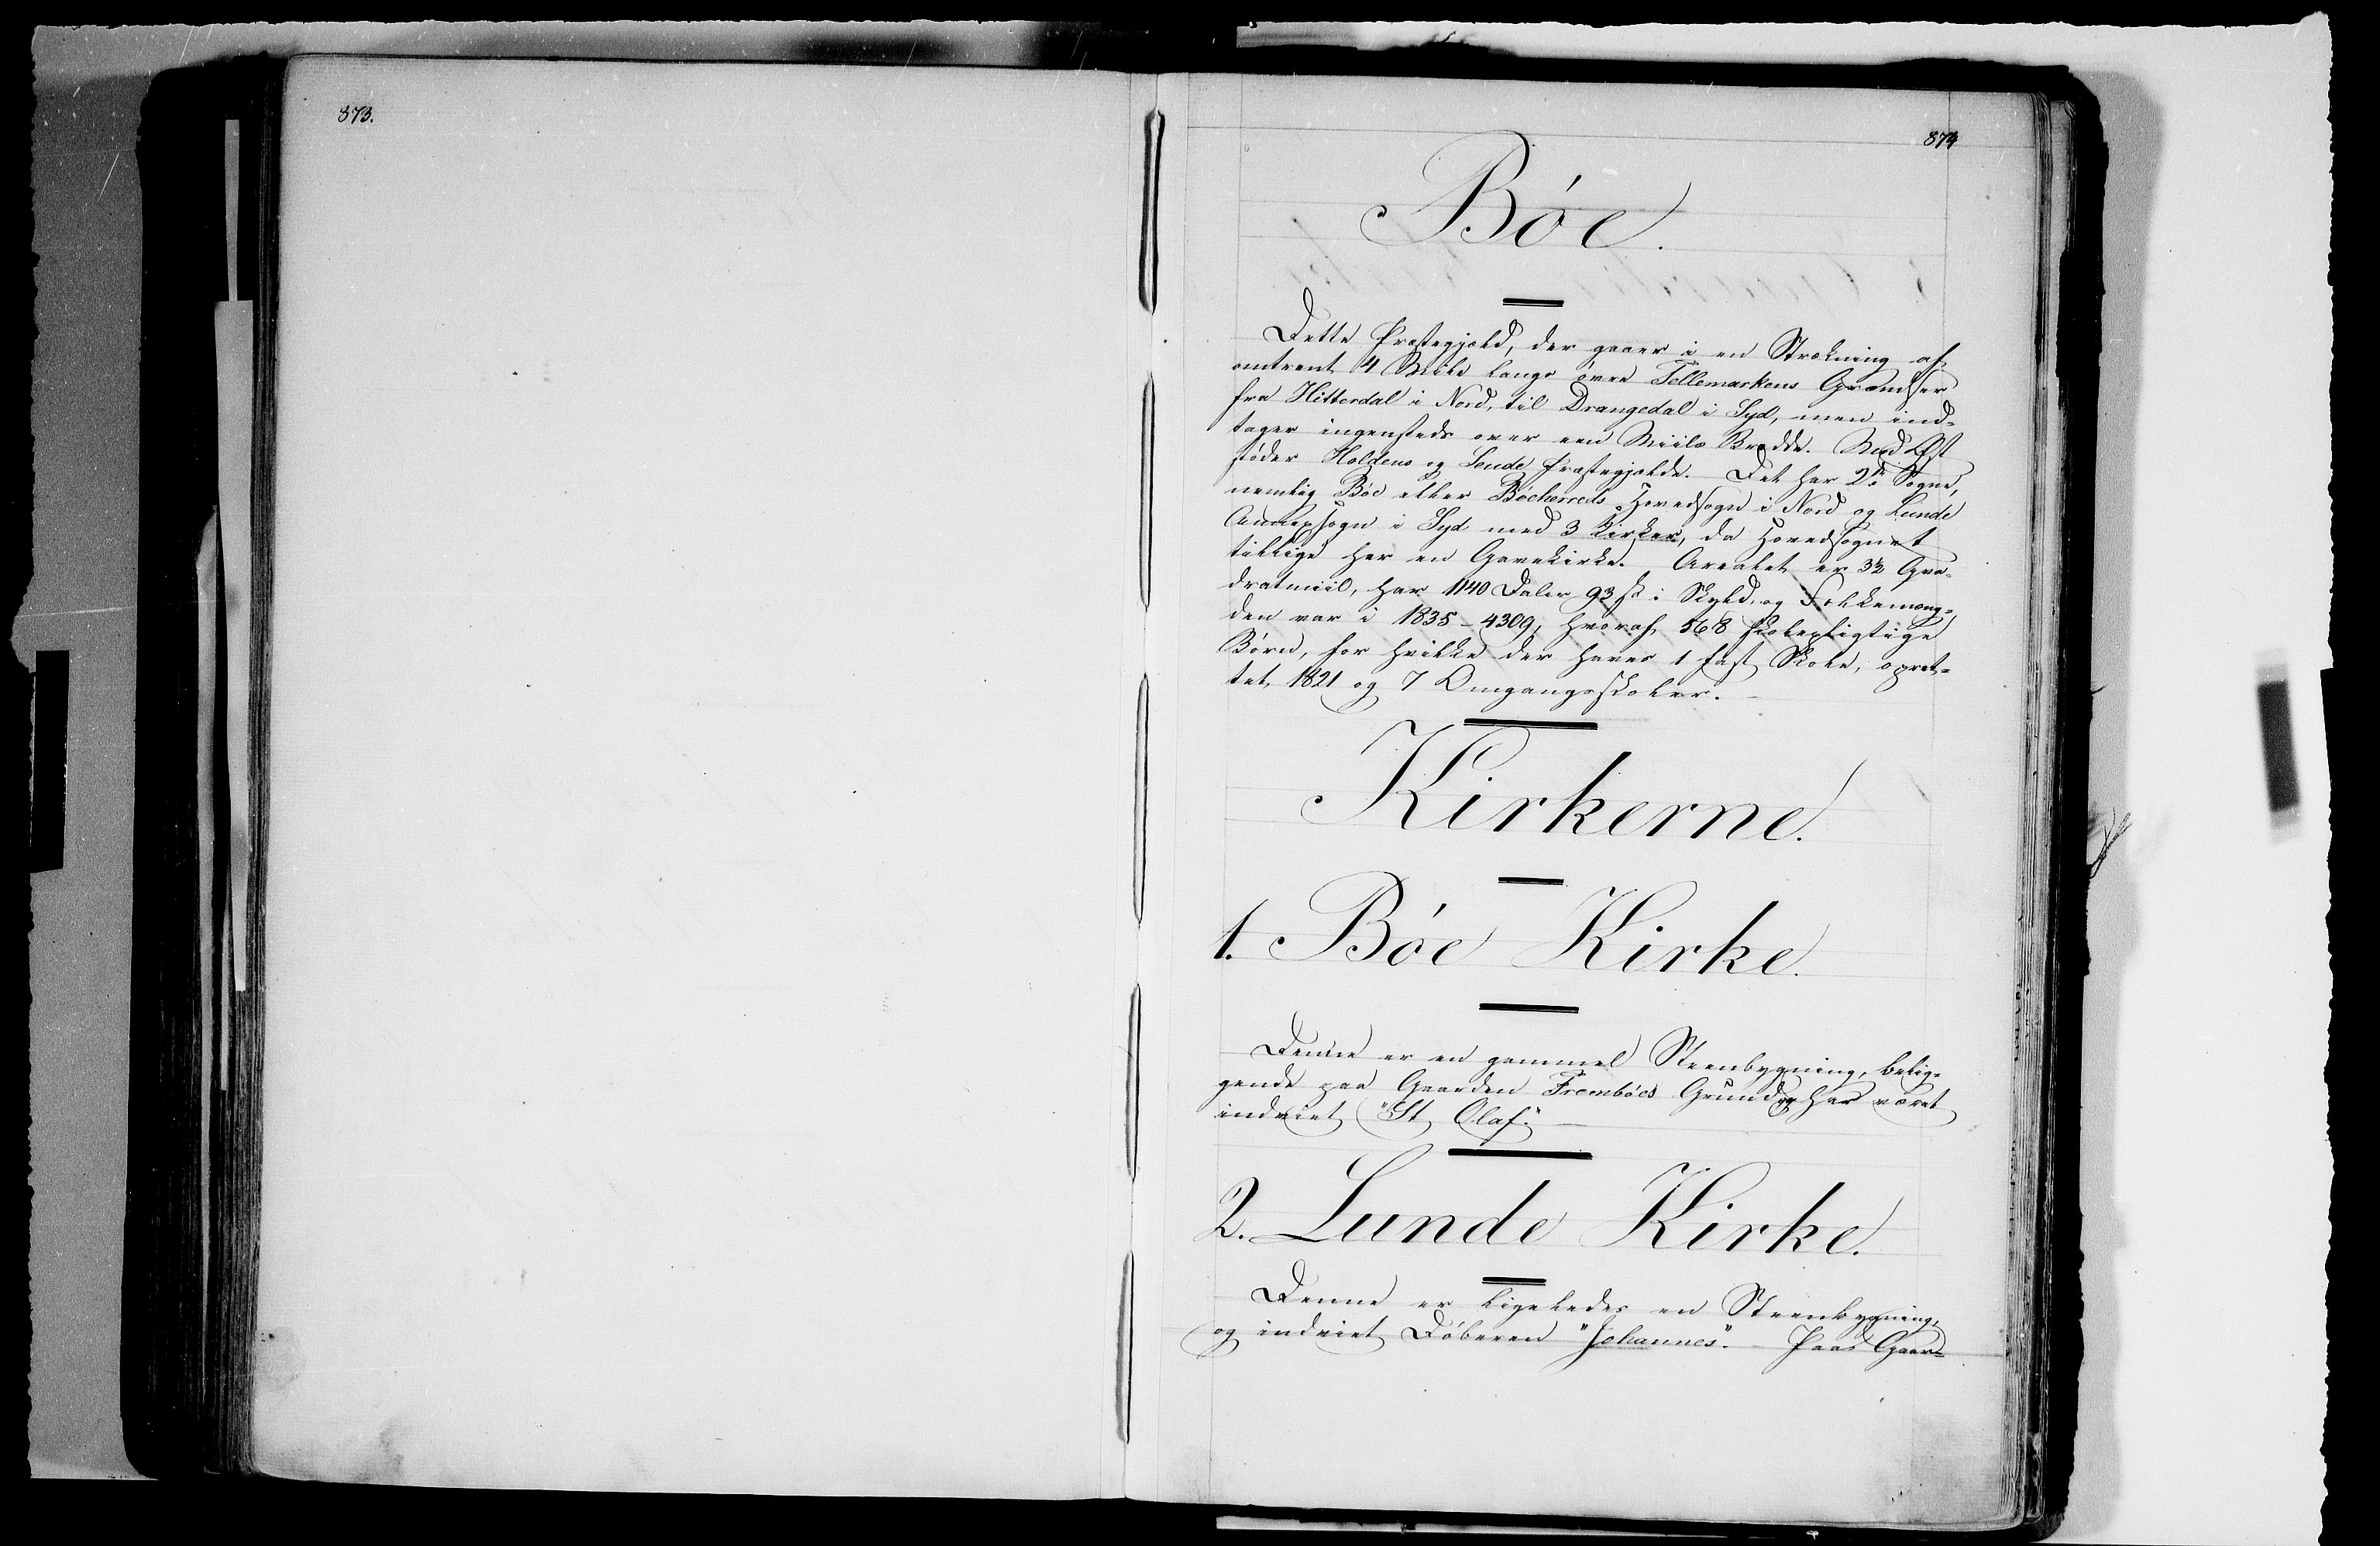 873.
874
Bøe.
Dette Præstegjæld, der gaaer i en Strækning af
omtrent 4 Mile langs øvre Tellemarkens Grændser
fra Hitterdal i Nord, til Drangedal i Syd, men ind-
tager ingensteds over een Miils Bredde. Mod Øst
støder Holdens og Sende Præstegjelde. Det har 2de Sogne,
nemlig Bøe eller Bøeherreds Hovedsogn i Nord og Lunde
Annexsogn i Syd med 3 Kirker, da Hovedsognet
tillige har en Gavekirke. Arealet er 3½ Qva-
dratmiil, har 1140 Daler 93 ß i Skyld, og Folkemæng-
den var i 1835 - 4309, hvoraf 568 skolepligtige
Børn, for hvilke der haves 1 fast Skole, opret-
tet 1821 og 7 Omgangsskoler. -
Kirkerne.
1. Bøe Kirke.
Denne er en gammel Steenbygning, belig-
gende paa Gaarden Frembøes Grund og har været
indviet "St. Olaf." -
2. Lunde Kirke.
Denne er ligeledes en Steenbygning,
og indviet Døberen "Johannes". - Paa Gaar-